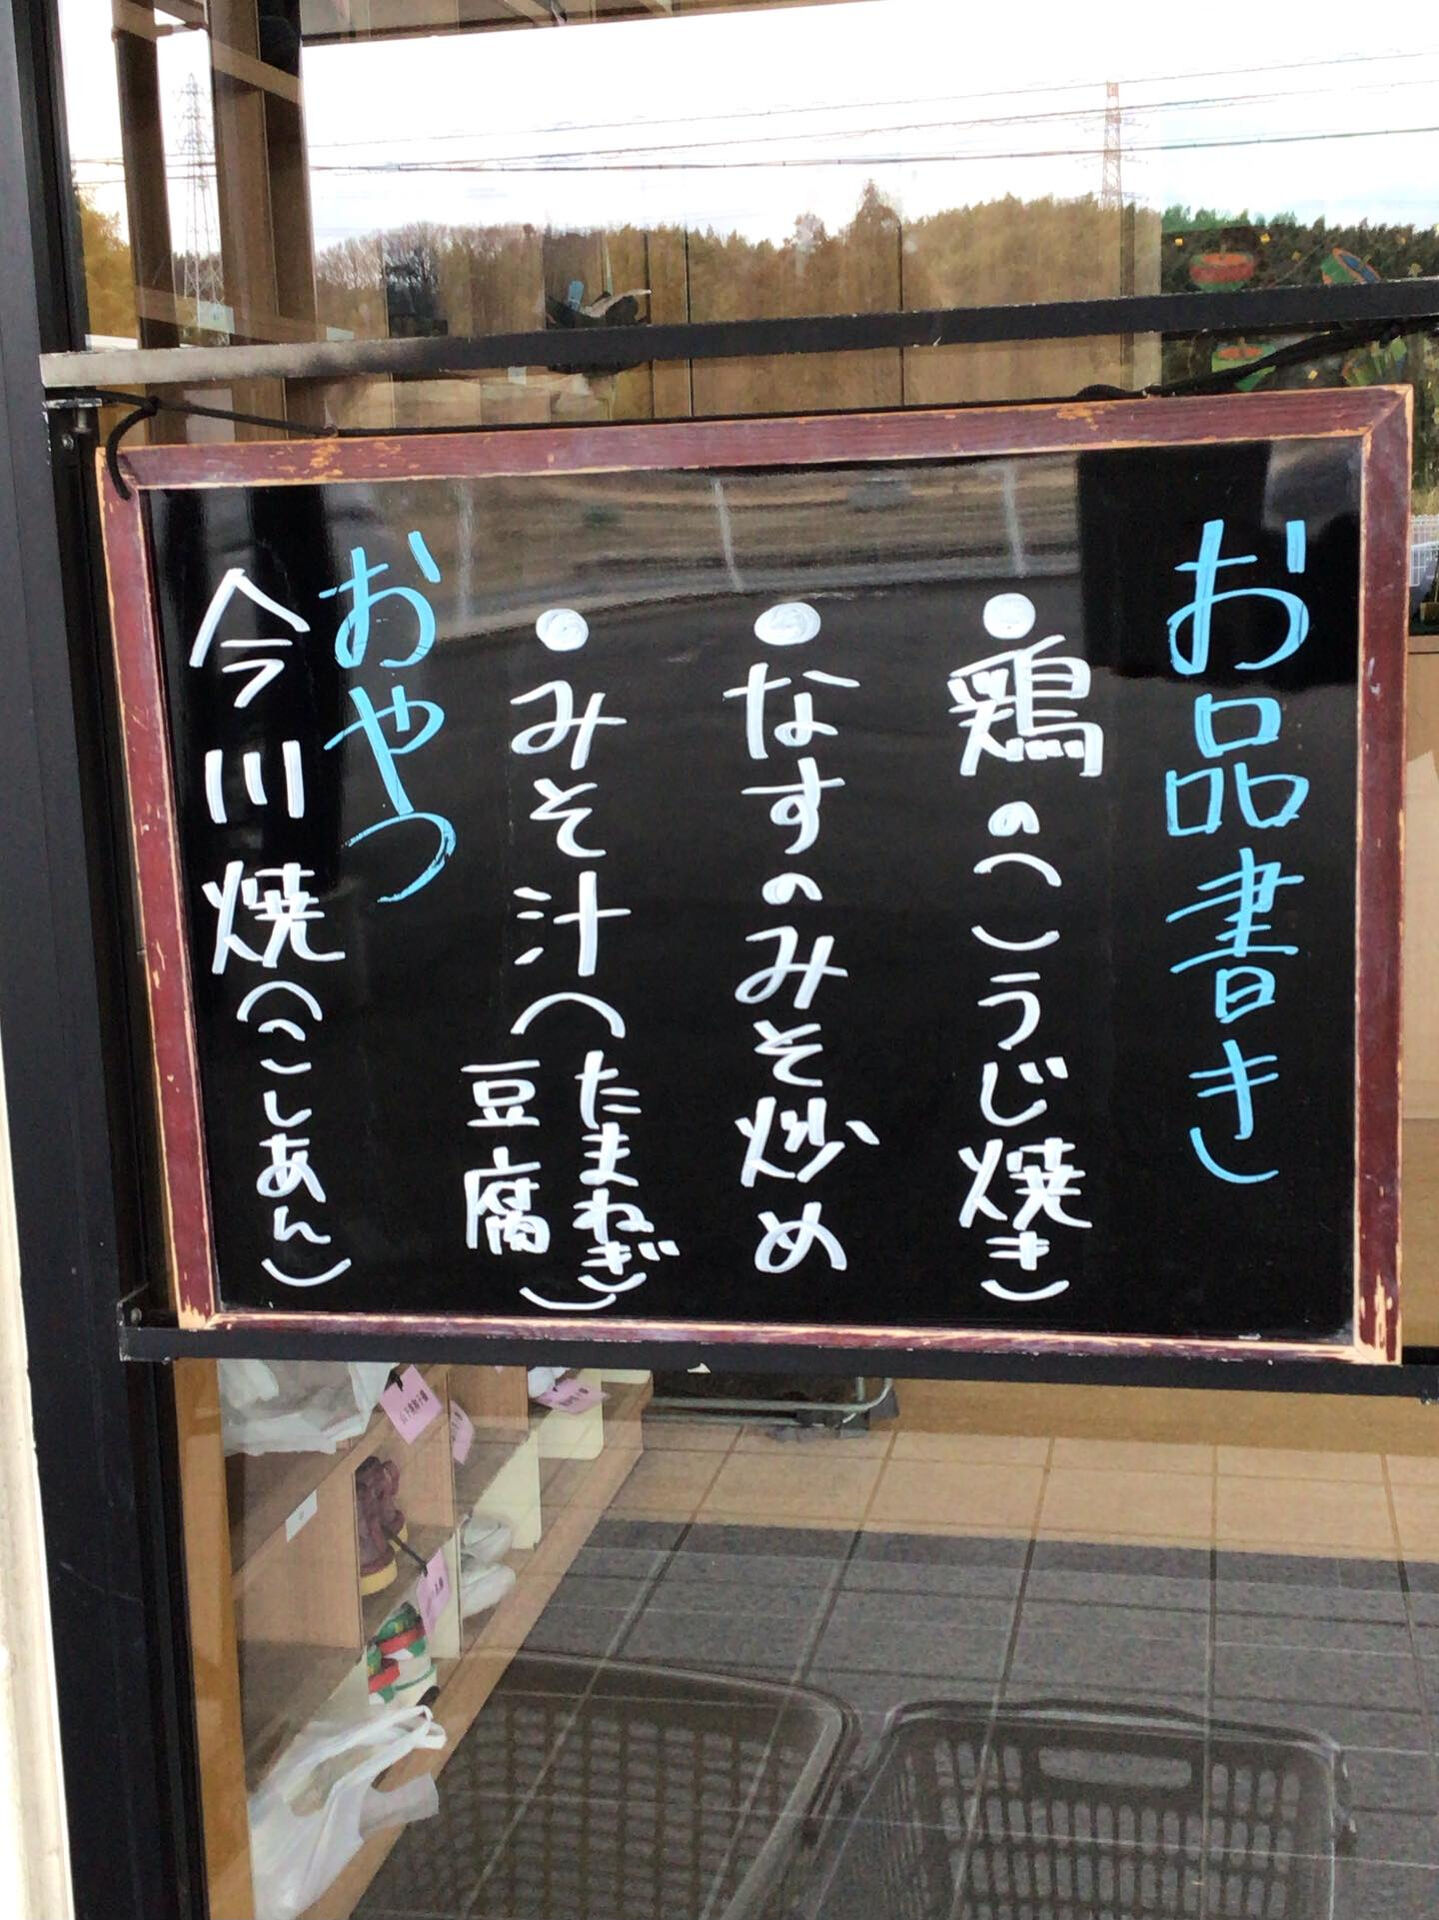 お品書き
●鶏の(こうじ焼き)
●なすのみそ炒め
●みそ汁(たまねぎ
豆腐)
おやつ
今川焼(こしあん)